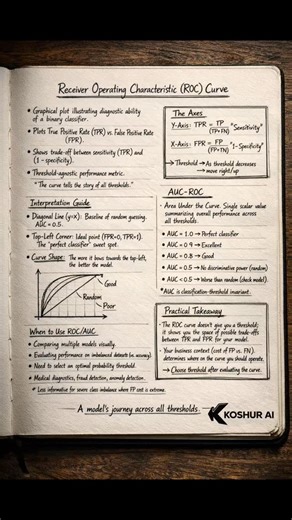 Receiver Operating Characteristic (ROC) Curve
• Graphical plot illustrating diagnostic ability
of a binary classifier.
• Plots True Positive Rate (TPR) vs. False Positive Rate
(FPR).
• Shows trade-off between sensitivity (TPR) and
(1 - specificity).
• Threshold-agnostic performance metric.
"The curve tells the story of all thresholds."
The Axes
Y-Axis: TPR = TP/(TP+FN) "Sensitivity"
X-Axis: FPR = FP/(FP+FN) "1-Specificity"
→ Threshold → As threshold decreases
→ move right/up
Interpretation Guide
• Diagonal Line (y=x): Baseline of random guessing.
AUC = 0.5.
• Top-Left Corner: Ideal point (FPR=0, TPR=1).
The "perfect classifier" sweet spot.
• Curve Shape: The more it bows towards the top-left,
the better the model.
Good
Random
Poor
AUC-ROC
• Area Under the Curve. Single scalar value
summarizing overall performance across
all thresholds.
• AUC = 1.0 → Perfect classifier
• AUC = 0.9 → Excellent
• AUC = 0.8 → Good
• AUC = 0.5 → No discriminative power (random)
• AUC < 0.5 → Worse than random (check model)
*AUC is classification-threshold-invariant.
When to Use ROC/AUC:
• Comparing multiple models visually.
• Evaluating performance on imbalanced datasets (vs. accuracy).
• Need to select an optimal probability threshold.
• Medical diagnostics, fraud detection, anomaly detection.
• Less informative for severe class imbalance where FP cost is extreme.
Practical Takeaway
• The ROC curve doesn't give you a threshold;
it shows you the space of possible trade-offs
between TPR and FPR for your model.
• Your business context (cost of FP vs. FN)
determines where on the curve you should operate.
→ Choose threshold after evaluating the curve.
A model's journey across all thresholds.
KOSHUR AI